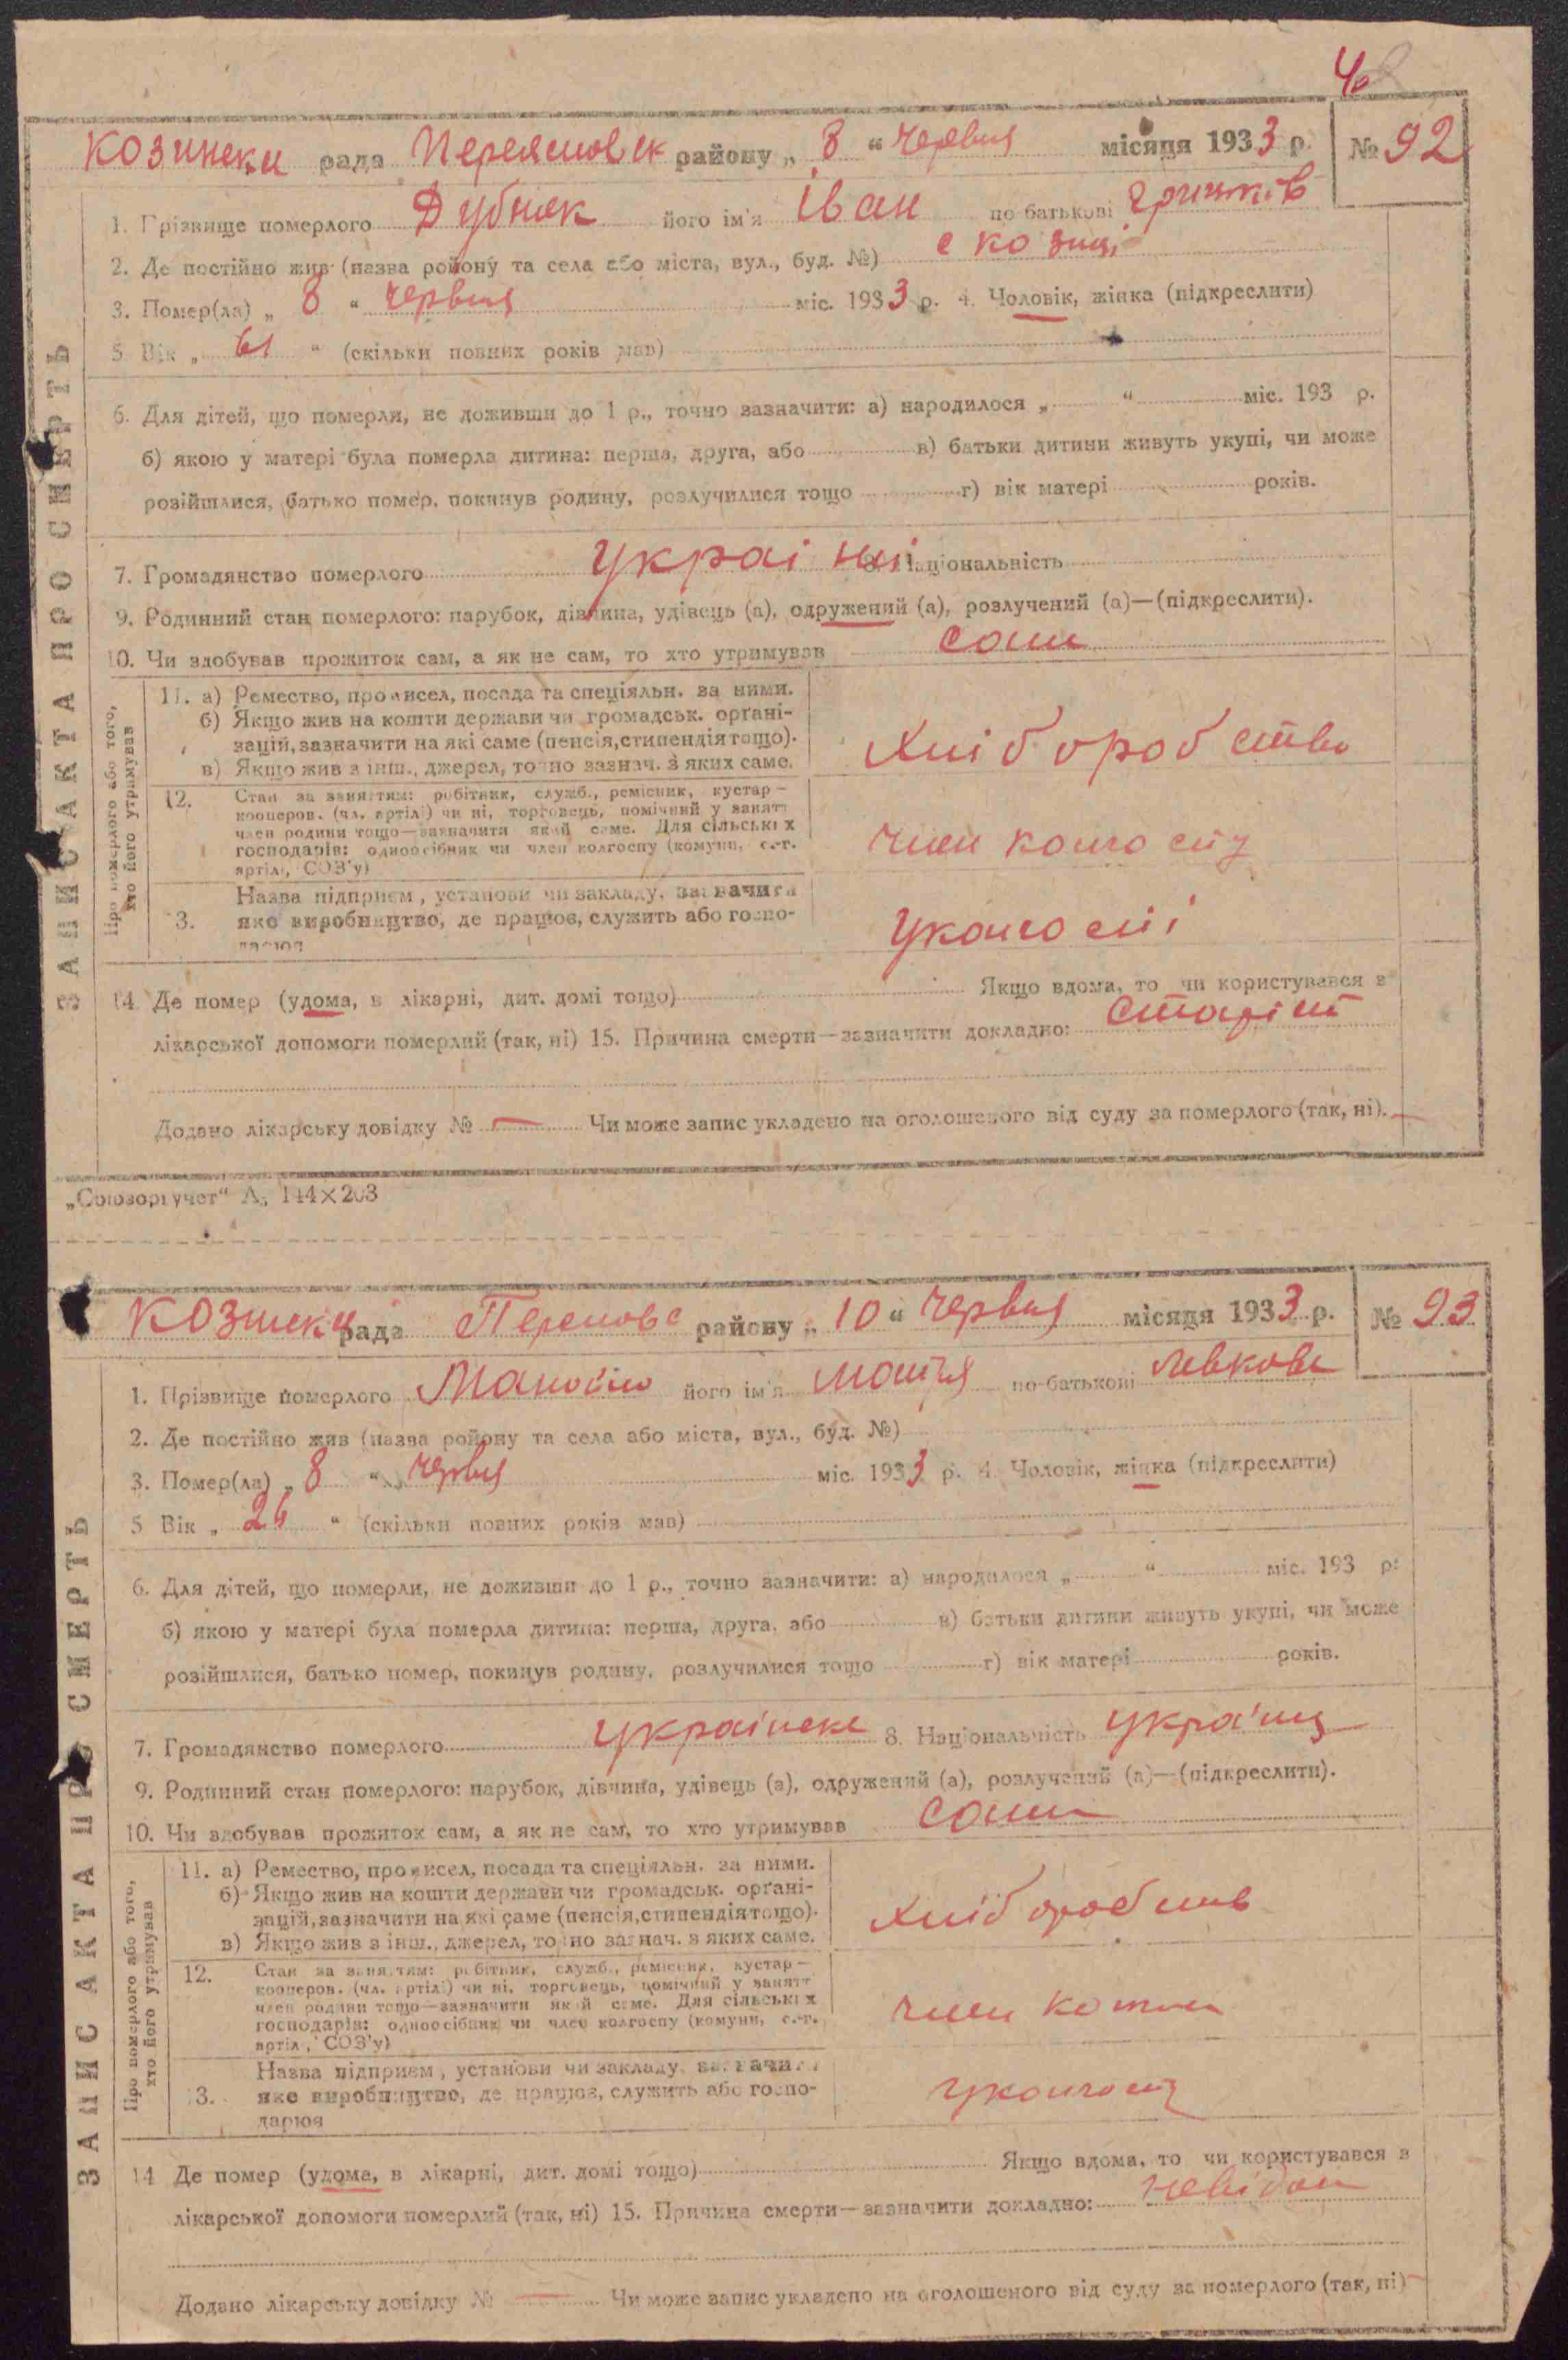 Козински рада Переяславск району „ 8 “ червня місяця 1933 р. № 92
1. Прізвище померлого Дубняк його ім'я Іван по батькові
2. Де постійно жив (назва району та села або міста, вул., буд. №)
3. Помер(ла) „ 8 “ червня міс. 1933 р. 4. Чоловік, жінка (підкреслити)
5 Вік „ 61 “ (скільки повних років мав)
6. Для дітей, що померли, не доживши до 1 р., точно зазначити: а) народилося „ “ міс. 193 р.
б) якою у матері була померла дитина: перша, друга, або в) батьки дитини живуть укупі, чи може
розійшлися, батько помер, покинув родину, розлучилися тощо г) вік матері років.
7. Громадянство померлого 8. Національність
9. Родинний стан померлого: парубок, дівчина, удівець (а), одружений (а), розлучений (а)—(підкреслити).
10. Чи здобував прожиток сам, а як не сам, то хто утримував сам
ЗАПИС АКТА ПРО СМЕРТЬ
Про померлого або того, хто його утримував
11. а) Ремество, промисел, посада та спеціяльн. за ними.
б) Якщо жив на кошти держави чи громадськ. орґані-
зацій, зазначити на які саме (пенсія, стипендія тощо).
в) Якщо жив з інш., джерел, точно зазнач. з яких саме.
Хліборобство
12. Стан за заняттям: робітник, служб., ремісник, кустар—
кооперов. (чл. артілі) чи ні, торговець, помічний у занятт
член родини тощо—зазначити який саме. Для сільських
господарів: одноосібник чи член колгоспу (комуни, с.-г.
артілі, СОЗ'у)
член колгоспу
Назва підприєм, установи чи закладу, зазначити
13. яке виробництво, де працює, служить або госпо-
дарює
У колгоспі
14 Де помер (удома, в лікарні, дит. домі тощо) Якщо вдома, то чи користувався з
лікарської допомоги померлий (так, ні) 15. Причина смерти—зазначити докладно: старіст
Додано лікарську довідку № — Чи може запис укладено на оголошеного від суду за померлого (так, ні). —
„Союзоргучет“ А₅ 144×203
Козински рада району „ 10 “ червня місяця 1933 р. № 93
1. Прізвище померлого його ім'я по батькові Левкова
2. Де постійно жив (назва району та села або міста, вул., буд. №)
3. Помер(ла) „ 8 “ червня міс. 1933 р. 4. Чоловік, жінка (підкреслити)
5 Вік „ “ (скільки повних років мав)
6. Для дітей, що померли, не доживши до 1 р., точно зазначити: а) народилося „ “ міс. 193 р.
б) якою у матері була померла дитина: перша, друга, або в) батьки дитини живуть укупі, чи може
розійшлися, батько помер, покинув родину, розлучилися тощо г) вік матері років.
7. Громадянство померлого українске 8. Національність
9. Родинний стан померлого: парубок, дівчина, удівець (а), одружений (а), розлучений (а)—(підкреслити).
10. Чи здобував прожиток сам, а як не сам, то хто утримував сам
ЗАПИС АКТА ПРО СМЕРТЬ
Про померлого або того, хто його утримував
11. а) Ремество, промисел, посада та спеціяльн. за ними.
б) Якщо жив на кошти держави чи громадськ. орґані-
зацій, зазначити на які саме (пенсія, стипендія тощо).
в) Якщо жив з інш., джерел, точно зазнач. з яких саме.
12. Стан за заняттям: робітник, служб., ремісник, кустар—
кооперов. (чл. артілі) чи ні, торговець, помічний у занятт
член родини тощо—зазначити який саме. Для сільських
господарів: одноосібник чи член колгоспу (комуни, с.-г.
артілі, СОЗ'у)
член
Назва підприєм, установи чи закладу, зазначити
13. яке виробництво, де працює, служить або госпо-
дарює
14 Де помер (удома, в лікарні, дит. домі тощо) Якщо вдома, то чи користувався з
лікарської допомоги померлий (так, ні) 15. Причина смерти—зазначити докладно:
Додано лікарську довідку № — Чи може запис укладено на оголошеного від суду за померлого (так, ні) —